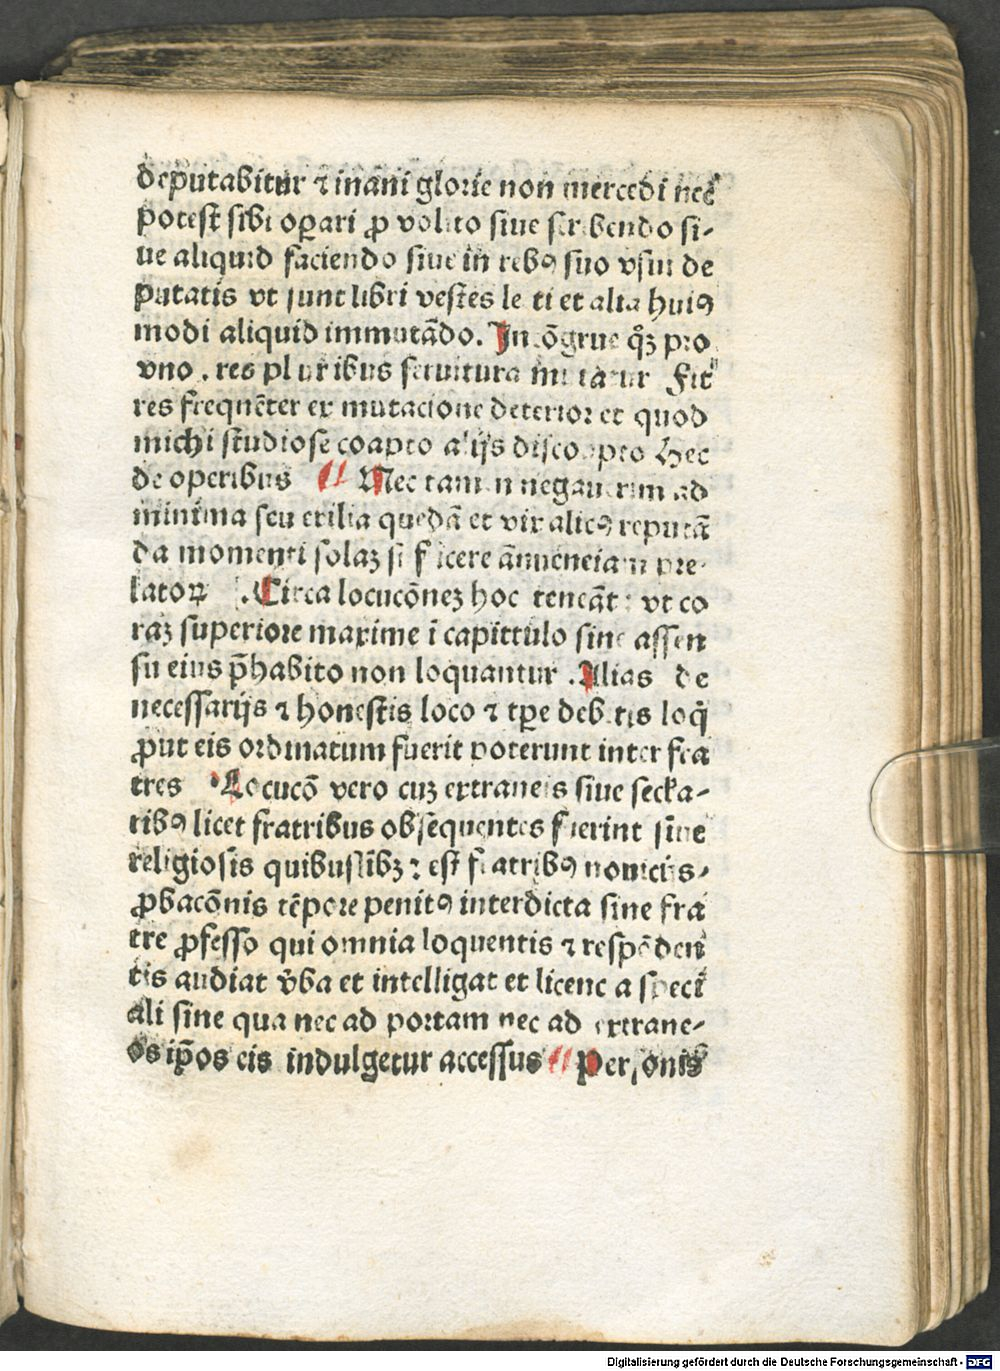 deputabitur ⁊ inani glorie non mercedi nec̄
potest sibi oꝑari ꝓ volito siue scribendo si-
ue aliquid faciendo siue in rebꝰ suo vsui de
putatis vt sunt libri vestes lecti et alia huiꝰ
modi aliquid immutādo. Incōgrue qͦꝫ pro
vno . res pluribus seruitura mutatur Fit
res frequēter ex mutacione deterior et quod
michi studiose coapto alijs discoopto Hec
de operibus Nec tamen negauerim ad
minima seu exilia quedā et vix alicꝰ reputā
da momenti solaꝫ sufficere ānuenciam pre-
latoꝝ . Circa locucōneꝫ hoc teneāt : vt co
raꝫ superiore maxime ī capittulo sine assen
su eius p̄habito non loquantur . Alias de
necessarijs ⁊ honestis loco ⁊ tꝑe debitis loq̇
ꝓut eis ordinatum fuerit poterunt inter fra
tres Locucō vero cuꝫ extraneis siue secla-
ribꝰ licet fratribus obsequentes fuerint siue
religiosis quibuslibꝫ : est fratribꝰ nouicijs-
ꝓbacōnis tēpore penitꝰ interdicta sine fra
tre ꝓfesso qui omnia loquentis ⁊ respōden
tis audiat v̄ba et intelligat et licencia speci
ali sine qua nec ad portam nec ad extrane-
os ip̄os eis indulgetur accessus Personis
Digitalisierung gefördert durch die Deutsche Forschungsgemeinschaft - DFG